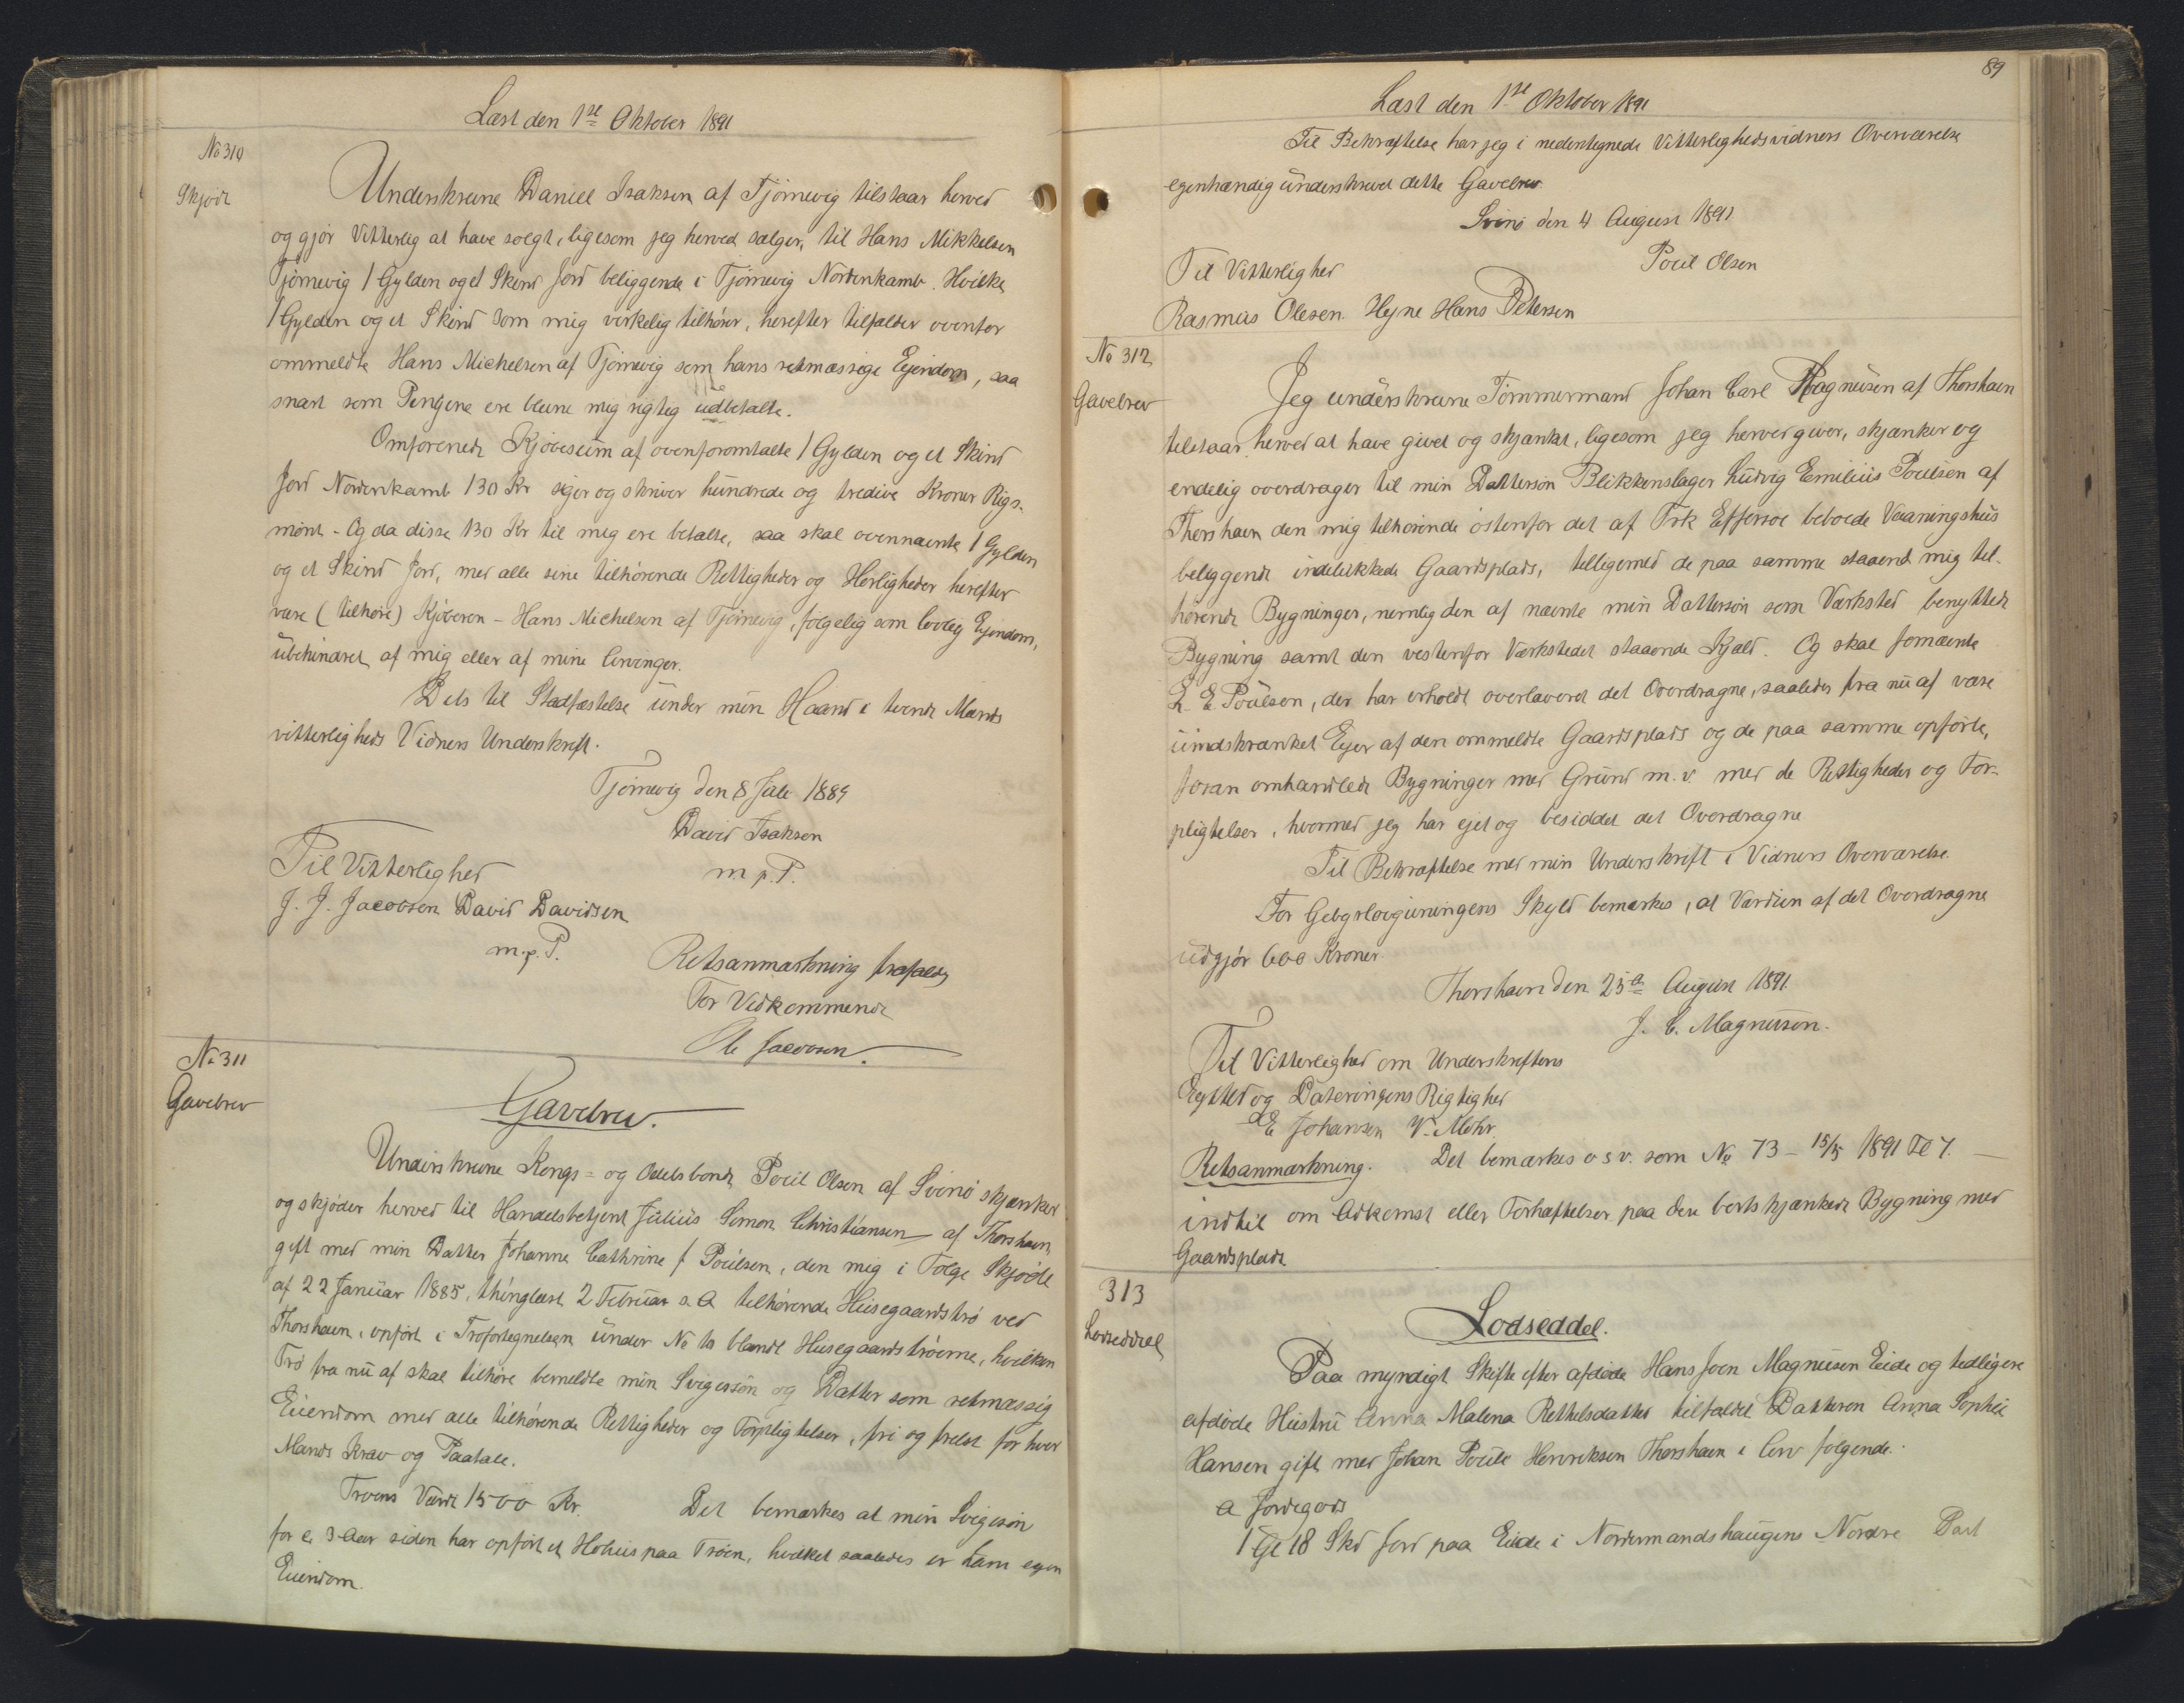 Læst den 1ste Oktober 1891
No 310
Skjøde
Underskrevne Daniel Isaksen af Tjörnevig tilstaar herved
og gjör Vitterlig at have solgt, ligesom jeg herved sælger, til Hans Mikkelsen
Tjörnevig 1 Gylden og et Skind Jord beliggende i Tjörnevig Nordenkamb. Hvilke
1 Gylden og et Skind som mig virkelig tilhörer, herefter tilfalder ovenfor
ommeldte Hans Michelsen af Tjörnevig som hans retmæssige Ejendom, saa
snart som Pengene ere blevne mig rigtig udbetalte.
Omforenede Kjöbesum af ovenforomtalte 1 Gylden og et Skind
Jord Nordenkamb 130 Kr siger og skriver hundrede og tredive Kroner Rigs-
mönt - Og da disse 130 Kr til mig ere betalte, saa skal ovennævnte 1 Gylden
og et Skind Jord, med alle sine tilhörende Rettigheder og Herligheder herefter
være (tilhöre) Kjöberen - Hans Michelsen af Tjörnevig, fölgelig som lovlig Ejendom,
ubehindret af mig eller af mine Arvinger.
Dets til Stadfæstelse under min Haand i tvende Mænds
vitterligheds Vidners Underskrift.
Tjörnevig den 8 Juli 1889
David Isaksen
m.p.P.
Til Vitterlighed
J. J. Jacobsen David Davidsen
m.p.P.
Retsanmærkning frafaldes
For Vedkommende
Ole Jacobsen.
No 311
Gavebrev
Gavebrev.
Underskrevne Kongs- og Odelsbonde Poul Olsen af Svinö skjænker
og skjöder herved til Handelsbetjent Julius Simon Christiansen af Thorshavn,
gift med min Datter Johanne Cathrine f Poulsen, den mig i Fölge Skjöde
af 22 Januar 1885, thinglæst 2 Februar s.A. tilhörende Husegaardströ ved
Thorshavn, opfört i Tröfortegnelsen under No 10 blandt Husegaardströerne, hvilken
Trö fra nu af skal tilhöre bemeldte min Svigersön og Datter som retmæssig
Eiendom med alle tilhörende Rettigheder og Forpligtelser, fri og frelst for hver
Mands Krav og Paatale.
Tröens Værdi 1500 Kr. Det bemærkes at min Svigersön
for c. 3 Aar siden har opfört et Hohuus paa Tröen, hvilket saaledes er ham egen
Eiendom.
89
Læst den 1ste Oktober 1891
Til Bekræftelse har jeg i nedentegnede Vitterlighedsvidners Overværelse
egenhændig underskrevet dette Gavebrev
Svinö den 4 August 1891
Poul Olsen
Til Vitterlighed
Rasmus Olesen. Hejne Hans Petersen
No 312
Gavebrev
Jeg underskrevne Tömmermand Johan Carl Magnusen af Thorshavn
tilstaar herved at have givet og skjænket, ligesom jeg herved giver, skjænker og
endelig overdrager til min Dattersön Blikkenslager Ludvig Emilius Poulsen af
Thorshavn den mig tilhörende östenfor det af Frk Effersöe beboede Vaaningshus
beliggende indelukkede Gaardsplads, tilligemed de paa samme staaende mig til-
hörende Bygninger, nemlig den af nævnte min Dattersön som Værksted benyttede
Bygning samt den vestenfor Værkstedet staaende Kjald. Og skal fornævnte
L. E. Poulsen, der har erholdt overleveret det Overdragne, saaledes fra nu af være
uindskrænket Ejer af den ommeldte Gaardsplads og de paa samme opförte,
foran omhandlede Bygninger med Grund m.v. med de Rettigheder og For-
pligtelser, hvormed jeg har ejet og besiddet det Overdragne
Til Bekræftelse med min Underskrift i Vidners Overværelse.
For Gebyrlovgivningens Skyld bemærkes, at Værdien af det Overdragne
udgjör 600 Kroner.
Thorshavn den 25de August 1891.
J. C. Magnussen.
Til Vitterlighed om Underskriftens
Ægthed og Dateringens Rigtighed
E Johansen V. Mohr.
Retsanmærkning. Det bemærkes o s v. som No 73 - 15/5 1891 Fol 7. -
indtil om Adkomst eller Forhæftelser paa den bortskjænkede Bygning med
Gaardsplads
313
Lodseddel
Lodseddel.
Paa myndigt Skifte efter afdöde Hans Joen Magnusen Eide og tidligere
afdöde Hustru Anna Malena Rethelsdatter tilfaldt Datteren Anna Sophie
Hansen gift med Johan Poule Henriksen Thorshavn i Arv fölgende.
a Jordegods
1 Gl 18 Skd Jord paa Eide i Nordermandshaugens Nordre Part